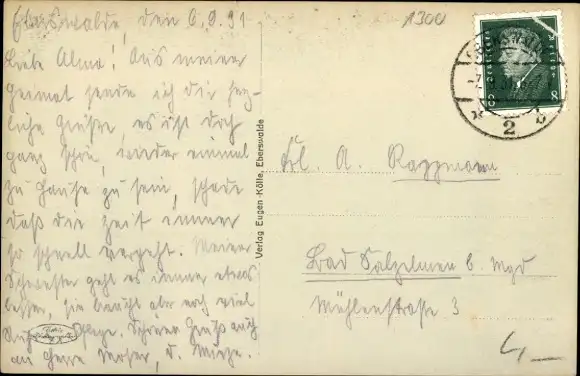 Eberswalde, den 6.9.31
Liebe Alma! Aus meiner
Heimat sende ich dir herz-
liche Grüße, es ist doch
ganz schön, wieder einmal
zu Hause zu sein, schade
daß die Zeit immer
so schnell vergeht. Meiner
Schwester geht es immer etwas
besser, sie braucht aber noch viel
Ruhe Pflege. Schönen Gruß auch
an Herrn Moser, u. Mieze.
Verlag Eugen Kölle, Eberswalde
1300
8 8
EBERSWALDE
2 b
Frl. A. Raggmann
Bad Salzelmen b. Mgd
Mühlenstraße 3